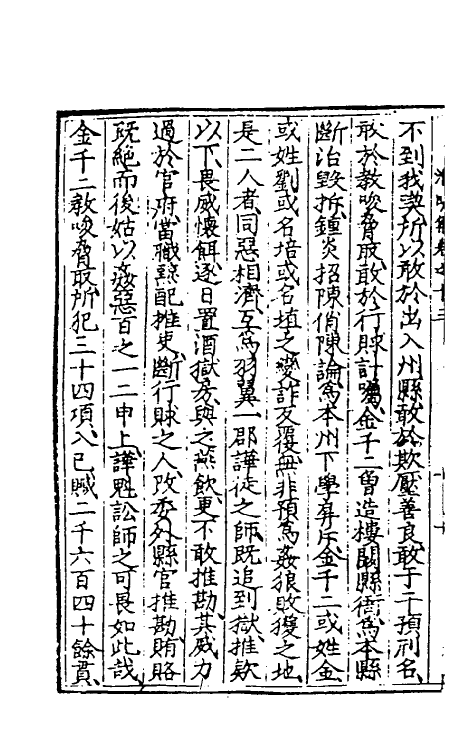 不到我與所以敢於出入州縣敢於欺壓善良敢于干預刑名
敢於教唆脅取敢於行賕計囑金千二曾造樓閣縣衙為本縣
斷治毀拆鍾炎招陳俏陳論為本州下學屏斥金千二或姓金
或姓劉或名培或名埴之變詐反覆無非預為姦狼敗獲之地
是二人者同惡相濟互為羽翼一郡譁徒之師既追到獄推款
以下畏威懷餌逐日置酒獄房與之燕飲更不敢推勘其威力
過於官府當職躬配推吏斷行賕之人改委外縣官推勘賄賂
既絕而後姑以姦惡百之一二申上譁魁訟師之可畏如此哉
金千二教唆脅取所犯三十四項入己贓二千六百四十餘貫